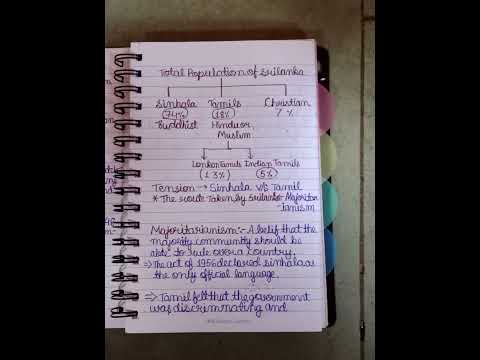 Total Population of Srilanka
Sinhala Tamils Christian
(74%) (18%) 7 %
Buddhist Hindu or,
Muslim
Lankan Tamils Indian Tamils
(13%) (5%)
Tension → Sinhala v/s Tamil
* The route taken by Srilanka- Majoritar
-ianism
Majoritarianism:- A belief that the
majority community should be
able to rule over a country.
⇒ The act of 1956 declared sinhala as
the only official language.
⇒ Tamil felt that the government
was discriminating and